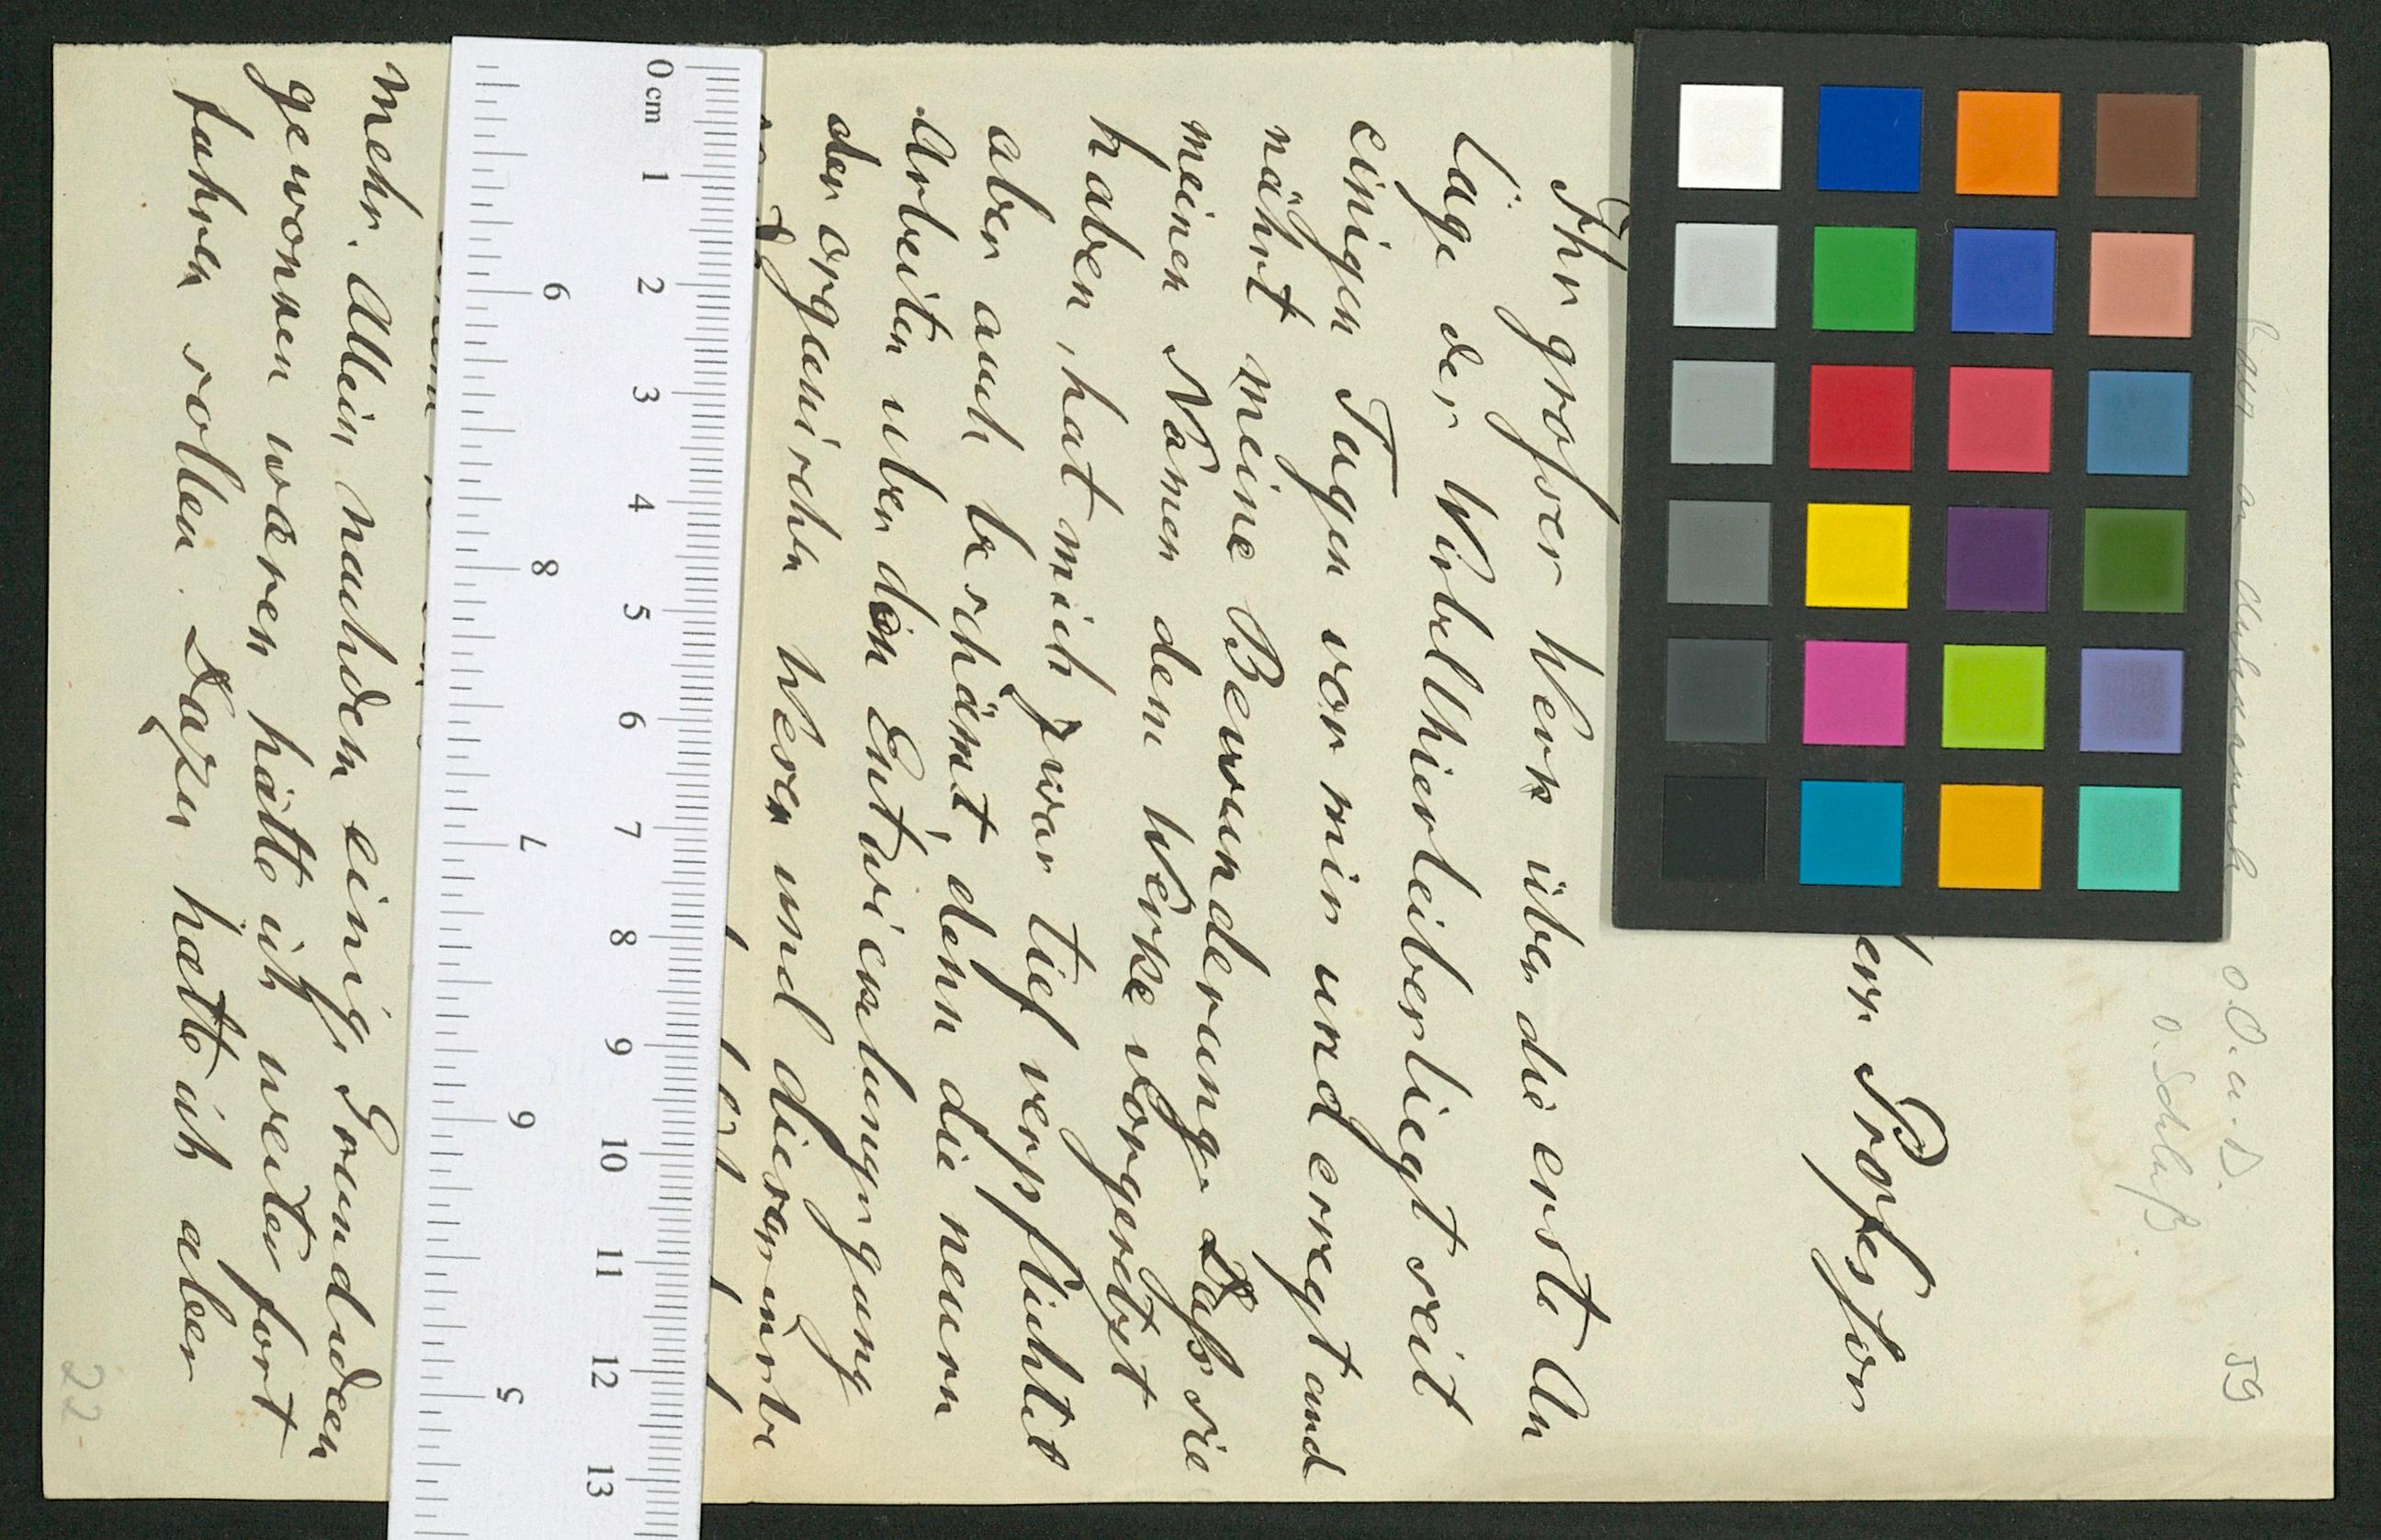 59
o. O. u. D.
o. Schluß.
Professor
Ihr grosser Werk über die erste An
lage der Wirbelthierleiber liegt seit
einigen Tagen vor mir und erregt und
nährt meine Bewunderung. Dass sie
meinen Namen dem Werke vorgesetzt
haben, hat mich zwar tief verpflichtet
aber auch beschämt, denn die neuern
Arbeiten uber den Entwickelungsgang
der organischen Wesen und die
mehr. Allein nachdem einige Grundideen
gewonnen waren hätte ich weiter fort
fahren sollen. Dazu hatte ich aber
22
0 cm 1 2 3 4 5 6 7 8 9 10 11 12 13